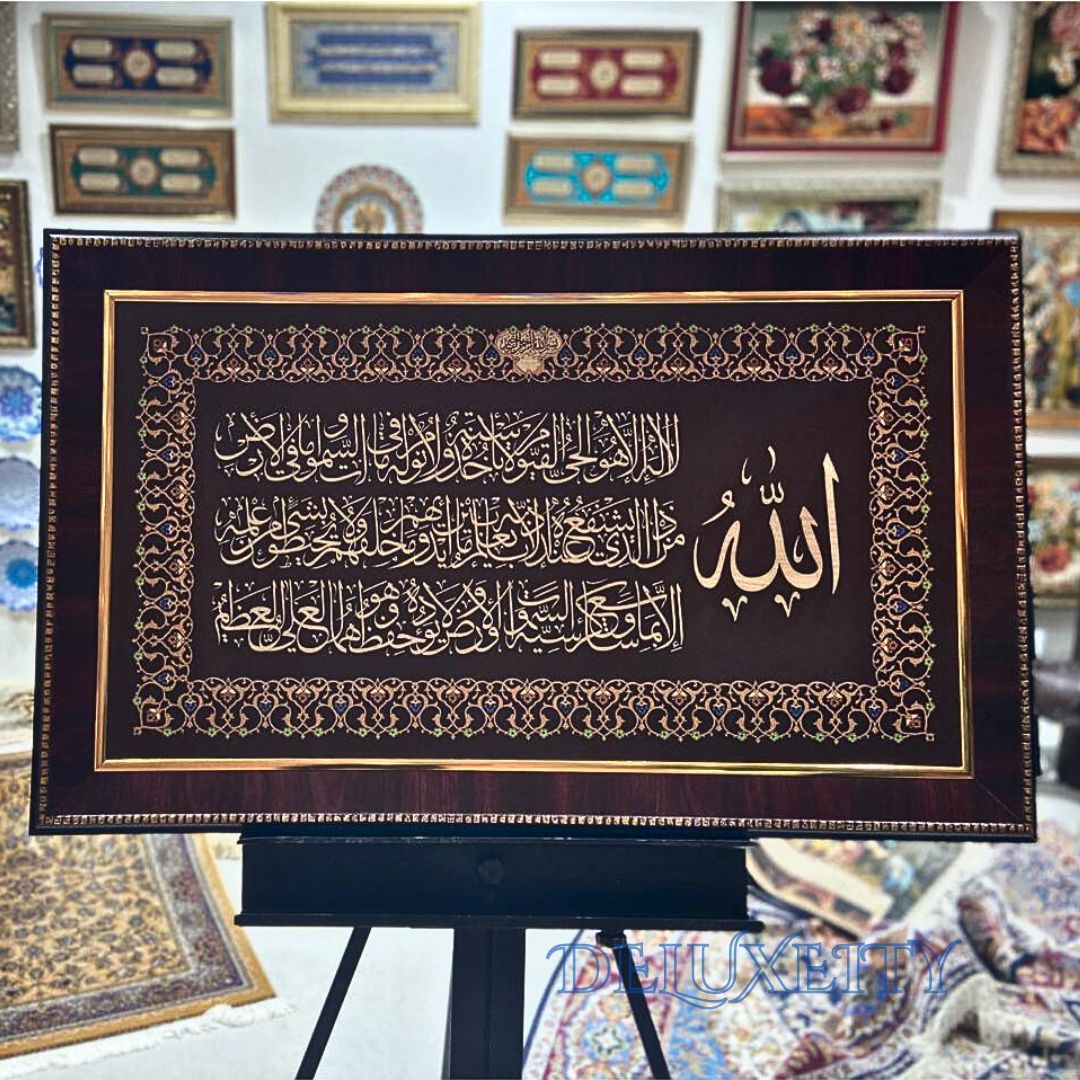 الله
لا إله إلا هو الحي القيوم لا تأخذه سنة ولا نوم له ما في السموات وما في الأرض
من ذا الذي يشفع عنده إلا بإذنه يعلم ما بين أيديهم وما خلفهم ولا يحيطون بشيء من علمه
إلا بما شاء وسع كرسيه السموات والأرض ولا يؤده حفظهما وهو العلي العظيم
DELUXEITY